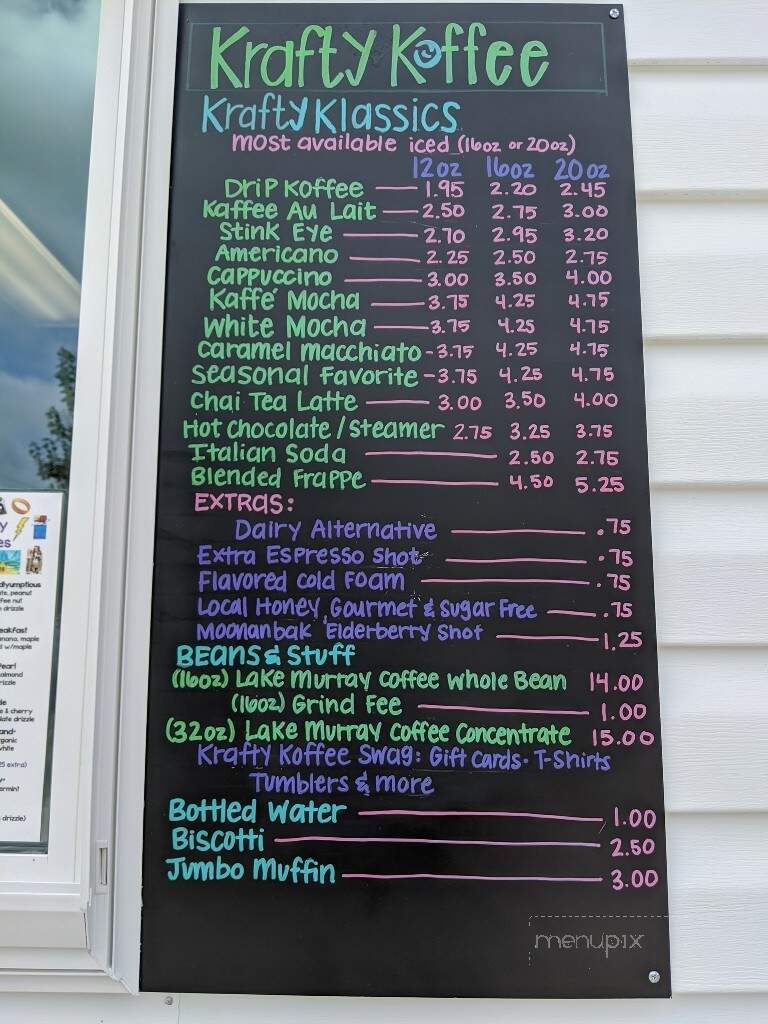 Krafty Koffee
Krafty Klassics
most available iced (16oz or 20oz)
12oz 16oz 20oz
Drip Koffee 1.95 2.20 2.45
Kaffee Au Lait 2.50 2.75 3.00
Stink Eye 2.70 2.95 3.20
Americano 2.25 2.50 2.75
Cappuccino 3.00 3.50 4.00
Kaffé Mocha 3.75 4.25 4.75
White Mocha 3.75 4.25 4.75
Caramel Macchiato - 3.75 4.25 4.75
Seasonal Favorite - 3.75 4.25 4.75
Chai Tea Latte 3.00 3.50 4.00
Hot Chocolate / Steamer 2.75 3.25 3.75
Italian Soda 2.50 2.75
Blended Frappe 4.50 5.25
EXTRAS:
Dairy Alternative .75
Extra Espresso Shot .75
Flavored Cold Foam .75
Local Honey, Gourmet & Sugar Free .75
Moonanbak Elderberry Shot 1.25
Beans & Stuff
(16oz) Lake Murray Coffee Whole Bean 14.00
(16oz) Grind Fee 1.00
(32oz) Lake Murray Coffee Concentrate 15.00
Krafty Koffee Swag: Gift Cards · T-Shirts
Tumblers & more
Bottled Water 1.00
Biscotti 2.50
Jumbo Muffin 3.00
menupix